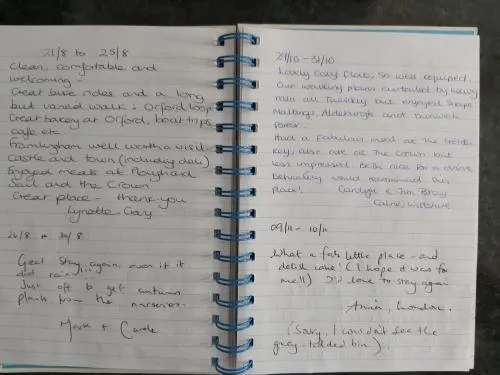 21/8 to 25/8
Clean, comfortable and
welcoming -
Great bike rides and a long
but varied walk: Orford loop
Great bakery at Orford, boat trips
cafe etc.
Framlingham well worth a visit -
castle and town (including deli)
Enjoyed meals at Plough and
Sail and the Crown
Great place - thank you
Lynette + Gary
26/8 to 30/8
Great stay again, even if it
did rain!!!
Just off to get autumn
plants from the nurseries.
Mark + Carole
29/10 - 31/10
Lovely cosy flat, so well equipped.
Our walking plans curtailed by heavy
rain all Tuesday but enjoyed Snape
Maltings, Aldeburgh and Dunwich
Had a fabulous meal at the Golden
Key, also ate at the Crown but
less impressed. Both nice for a drink,
Definitely would recommend this
place! Carolyn & Jim Bray
Calne, Wiltshire
09/11 - 10/11
What a fab little place - and
delish cake! (I hope it was for
me!!) I'd love to stay again
London.
(Sorry, I couldn't see the
grey lidded bin).